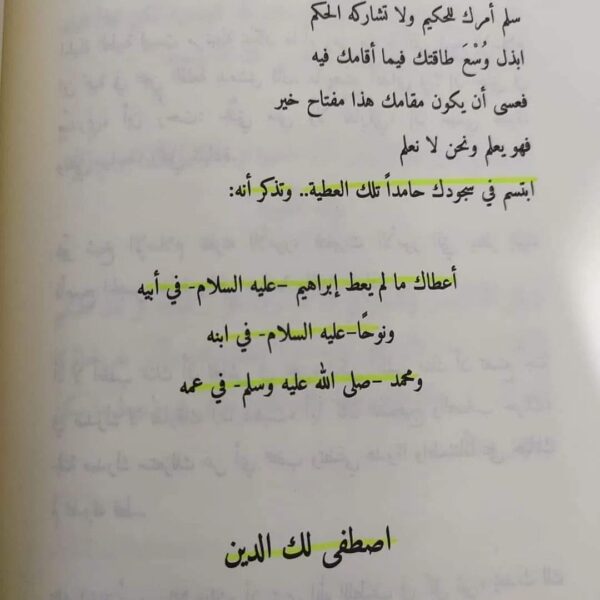 سلم أمرك للحكيم ولا تشاركه الحكم
ابذل وُسْعَ طاقتك فيما أقامك فيه
فعسى أن يكون مقامك هذا مفتاح خير
فهو يعلم ونحن لا نعلم
ابتسم في سجودك حامداً تلك العطية.. وتذكر أنه:
أعطاك ما لم يعط إبراهيم -عليه السلام- في أبيه
ونوحًا-عليه السلام- في ابنه
ومحمد -صلى الله عليه وسلم- في عمه
اصطفى لك الدين